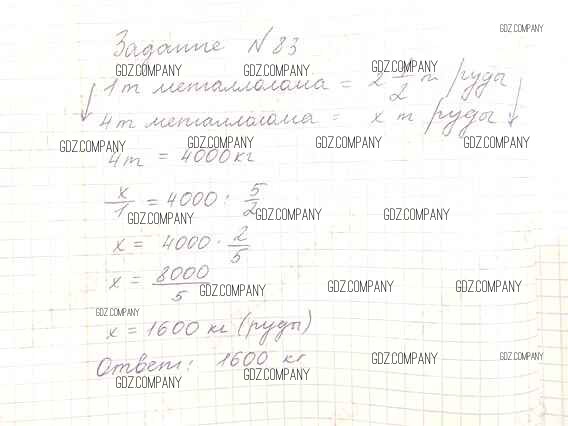 GDZ.COMPANY
Задание N 83
GDZ.COMPANY GDZ.COMPANY GDZ.COMPANY
1т металлолома = 2 1/2 т руды
4т металлолома = x т руды
GDZ.COMPANY GDZ.COMPANY GDZ.COMPANY GDZ.COMPANY
4т = 4000 кг
x/1 = 4000 : 5/2
GDZ.COMPANY GDZ.COMPANY GDZ.COMPANY
x = 4000 · 2/5
x = 8000/5
GDZ.COMPANY GDZ.COMPANY GDZ.COMPANY
GDZ.COMPANY
x = 1600 кг (руды)
Ответ: 1600 кг
GDZ.COMPANY GDZ.COMPANY
GDZ.COMPANY GDZ.COMPANY